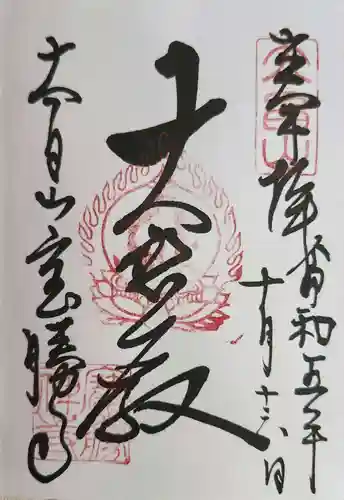 奉拝 令和五年
十月十六日
大悲殿
大日山宝勝寺